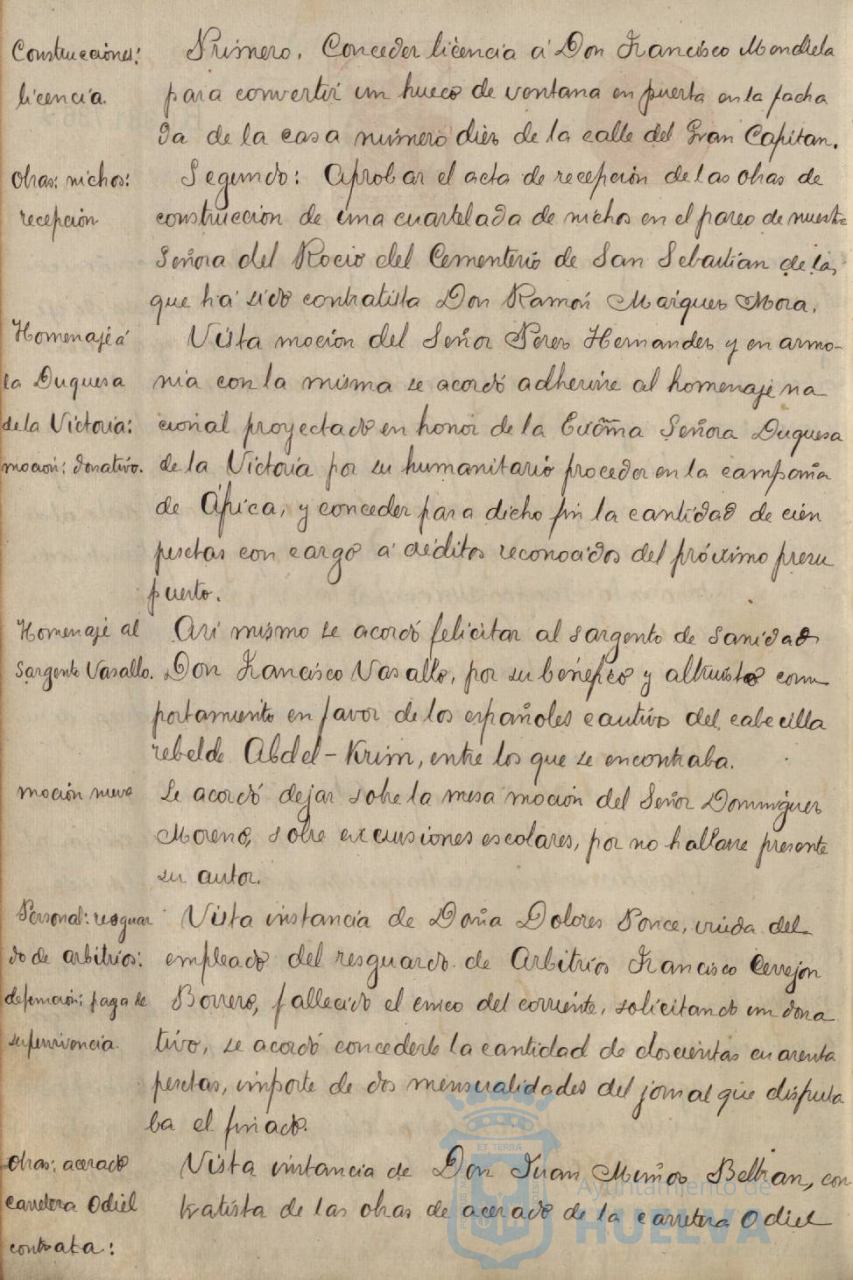 Construcciones: Primero. Conceder licencia á Don Francisco Mondiela
licencia. para convertir un hueco de ventana en puerta en la facha
da de la casa número diez de la calle del Gran Capitan.
Obras: nichos: Segundo: Aprobar el acta de recepción de las obras de
recepción construccion de una cuartelada de nichos en el paseo de nuestra
Señora del Rocio del Cementerio de San Sebastian de las
que há sido contratista Don Ramón Marquez Mora.
Homenaje á Vista moción del Señor Perez Hernandez y en armo-
la Duquesa nia con la misma se acordó adherirse al homenaje na
de la Victoria: cional proyectado en honor de la Excma Señora Duquesa
moción: donativo. de la Victoria por su humanitario proceder en la campaña
de África, y conceder para dicho fin la cantidad de cien
pesetas con cargo á créditos reconocidos del próximo presu
puesto.
Homenaje al Asi mismo se acordó felicitar al sargento de Sanidad
Sargento Vasallo. Don Francisco Vasallo, por su benéfico y altruista com
portamiento en favor de los españoles cautivos del cabecilla
rebelde Abdel-Krim, entre los que se encontraba.
moción nueva Se acordó dejar sobre la mesa moción del Señor Dominguez
Moreno, sobre excursiones escolares, por no hallarse presente
su autor.
Personal: resguar Vista instancia de Doña Dolores Ponce, viuda del
do de arbitrios: empleado del resguardo de Arbitrios Francisco Cerrejon
defunción: paga de Borrero, fallecido el cinco del corriente, solicitando un dona
supervivencia. tivo, se acordó concederle la cantidad de doscientas cuarenta
pesetas, importe de dos mensualidades del jornal que disfruta
ba el finado.
Obras: acerado Vista instancia de Don Juan Muñoz Beltran, con
carretera Odiel tratista de las obras de acerado de la carretera Odiel
contrata:
Ayuntamiento de
HUELVA